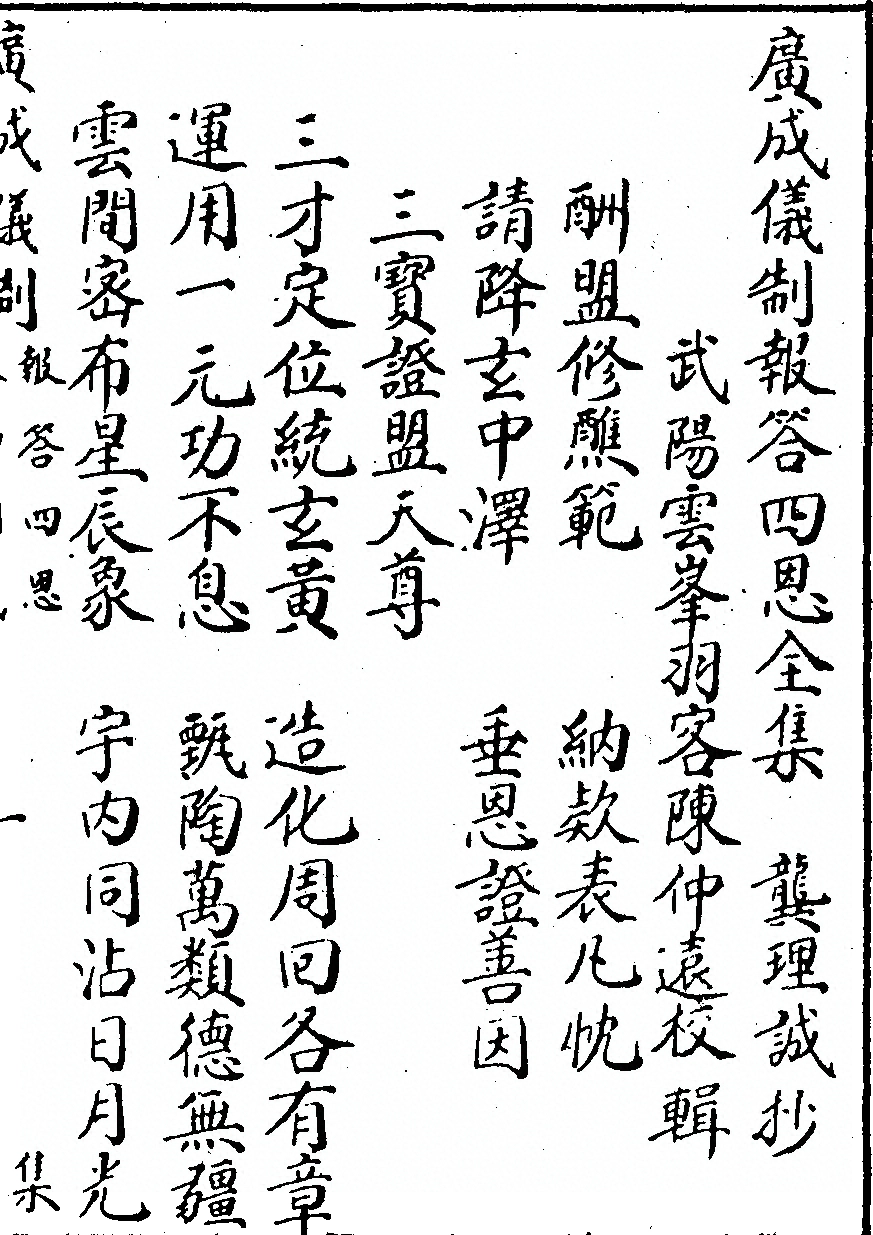 廣成儀制報答四恩全集　龔理誠抄
武陽雲峯羽客陳仲遠校輯
酬盟修醮範　納款表凡忱
請降玄中澤　垂恩證善因
三寶證盟天尊
三才定位統玄黃　造化周回各有章
運用一元功不息　甄陶萬類德無疆
雲間密布星辰象　宇内同沾日月光
廣成儀制　報答四恩　一　集